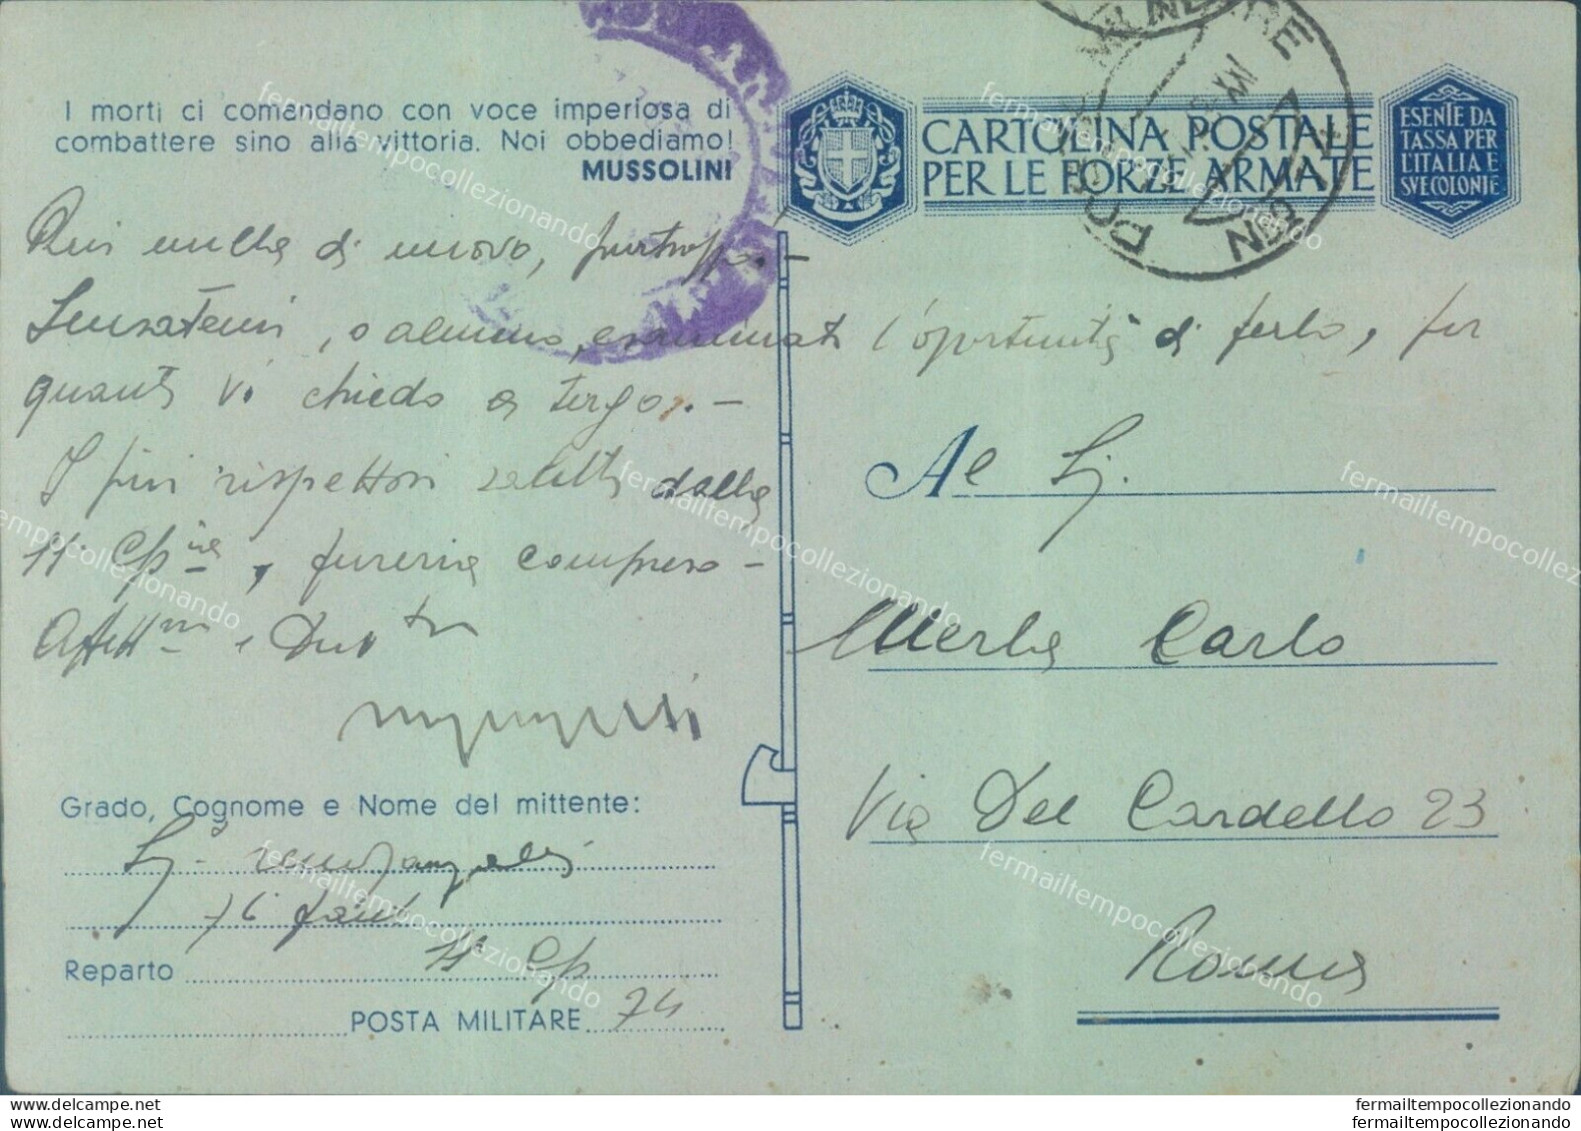 I morti ci comandano con voce imperiosa di
combattere sino alla vittoria. Noi obbediamo!
MUSSOLINI
CARTOLINA POSTALE
PER LE FORZE ARMATE
ESENTE DA
TASSA PER
L'ITALIA E
SVE COLONIE
POSTA MILITARE
Qui nulla di nuovo, purtroppo.-
l'oportunità di farlo, per
quanto vi chiedo a tergo.-
I più rispettosi saluti dalla
11ª Cpnia, fureria compreso -
Al Sig.
Merla Carlo
Via Del Cardello 23
Roma
Grado, Cognome e Nome del mittente:
76 fant
Reparto 11 Cp
POSTA MILITARE 74
www.delcampe.net
fermailtempocollezionando
www.delcampe.net
fermailtempocollezionando